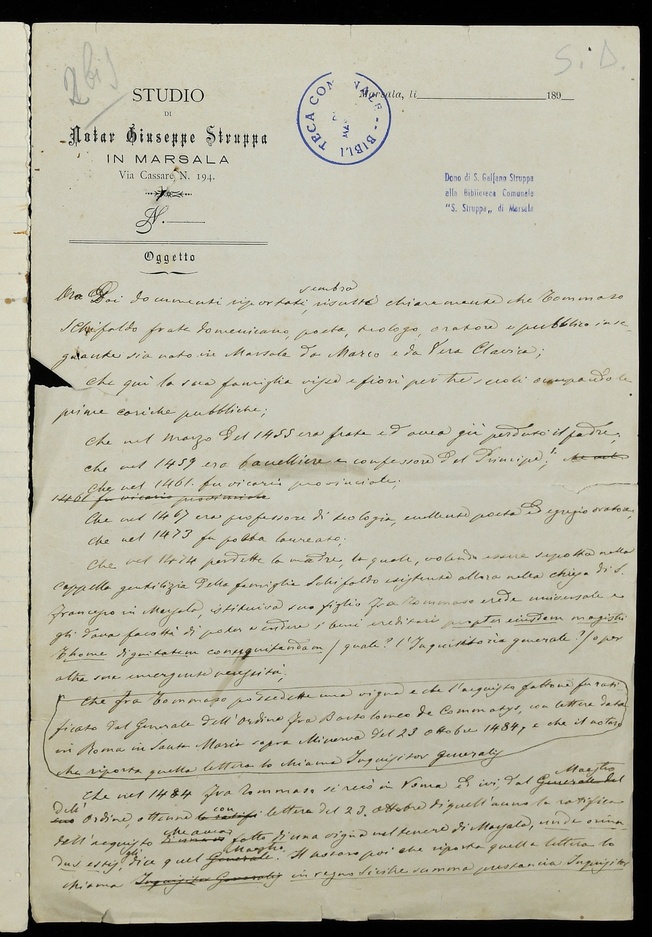 2 bis
S. D.
STUDIO
DI
Notar Giuseppe Struppa
IN MARSALA
Via Cassaro, N. 194.
N.
Oggetto
Marsala, li 189
BIBLIOTECA COMUNALE
Dono di S. Galfano Struppa
alla Biblioteca Comunale
"S. Struppa" di Marsala
sembra
Ora Dai documenti riportati, risulta chiaramente che Tommaso
Schifaldo frate domenicano, poeta, teologo, oratore e pubblico inse-
gnante sia nato in Marsala da Marco e da Vera Clavica;
che qui la sua famiglia visse e fiorì per tre secoli occupando le
prime cariche pubbliche;
che nel Marzo del 1455 era frate ed avea già perduto il padre;
che nel 1459 era baccelliere e confessore del Principe;
che nel 1461. fu vicario provinciale;
1461 fu vicario provinciale
che nel 1467 era professore di teologia, eccellente poeta ed egregio oratore;
che nel 1473 fu poeta laureato;
che nel 1474 perdette la madre, la quale, volendo essere sepolta nella
cappella gentilizia della famiglia Schifaldo esistente allora nella chiesa di S.
Francesco in Marsala, istituiva suo figlio Fra Tommaso erede universale e
gli dava facoltà di poter vendere i beni ereditari propter eiusdem magistri
Thome dignitatem consequitandam / quale? l'Inquisitoria generale? / o per
altra sua emergente necessità;
che Fra Tommaso possedette una vigna e che l'acquisto fattone fu rati-
ficato dal Generale dell'Ordine Fra Bartolomeo de Commatys, con lettere data
in Roma in Santa Maria sopra Minerva del 23 Ottobre 1484, e che il notaro
che riporta quella lettera lo chiama Inquisitor Generalis
Maestro
Che nel 1484 Fra Tommaso si recò in Roma ed ivi, dal Generale del
dell' Ordine ottenne con la ratifica lettere del 23. Ottobre di quell'anno la ratifica
che avea
dell'acquisto fatto di una vigna nel tenere di Marsala, unde
gli Maestro
estis, dice quel Generale. Il notaro poi che riporta quella lettera lo
chiama Inquisitor Generalis in regno Sicilie summa prestancia Inquisitor